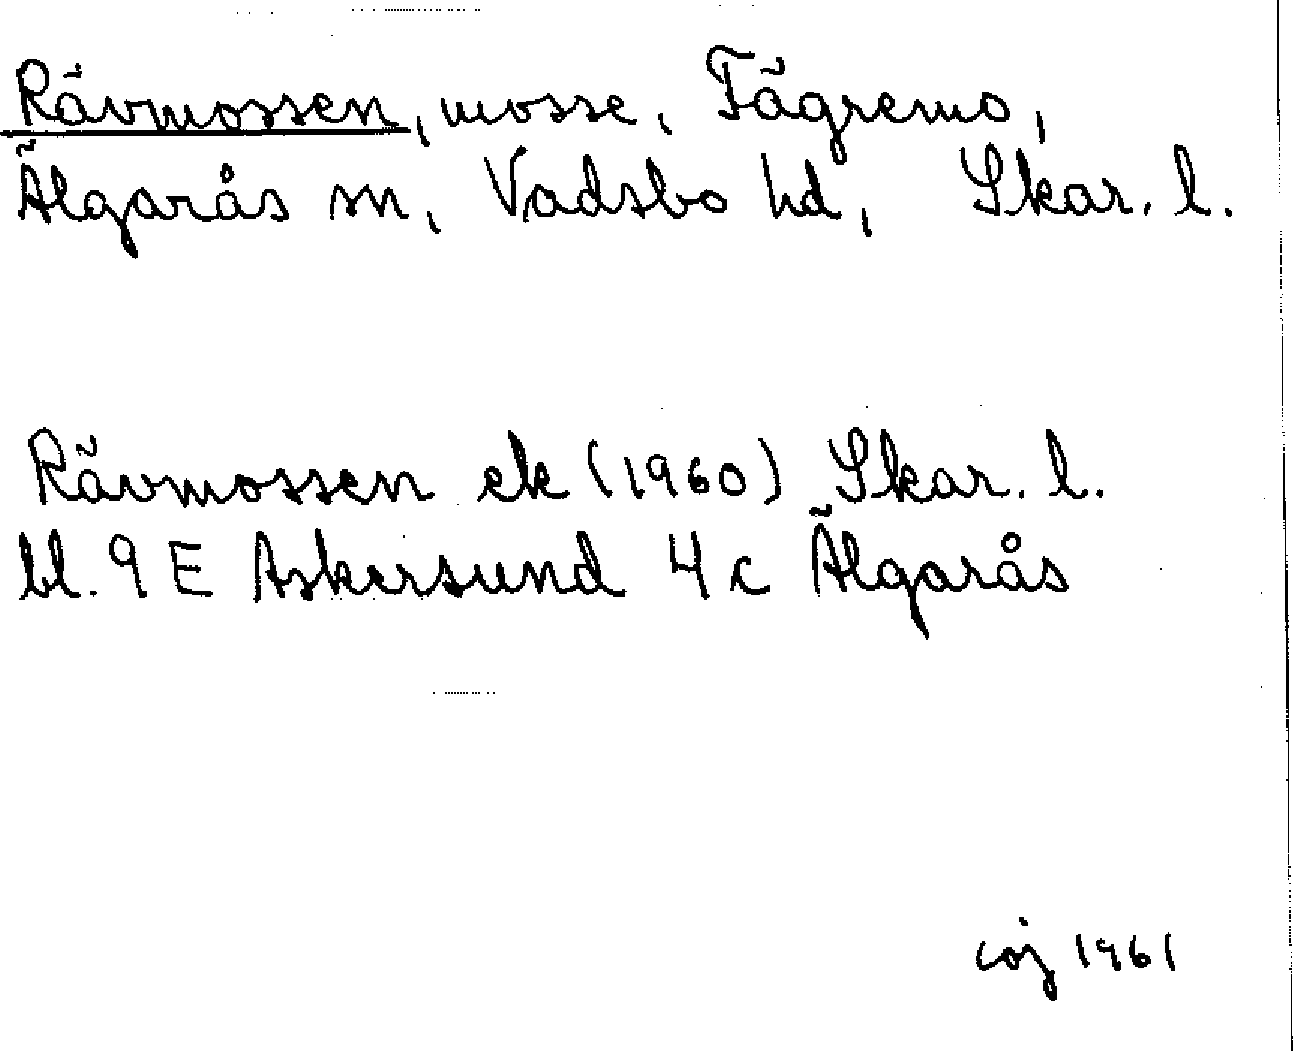 Rävmossen, mosse, Fägremo,
Älgarås sn, Vadsbo hd, Skar. l.
Rävmossen ek (1960) Skar. l.
bl. 9 E Askersund 4 c Älgarås
coj 1961